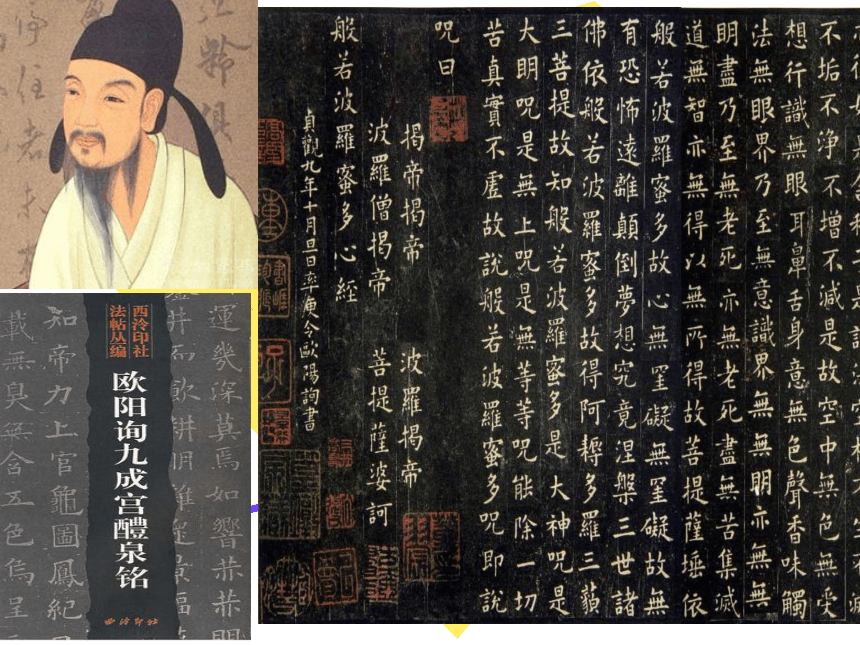 不垢不淨不增不減是故空中無色無受
想行識無眼耳鼻舌身意無色聲香味觸
法無眼界乃至無意識界無無明亦無無
明盡乃至無老死亦無老死盡無苦集滅
道無智亦無得以無所得故菩提薩埵依
般若波羅蜜多故心無罣礙無罣礙故無
有恐怖遠離顛倒夢想究竟涅槃三世諸
佛依般若波羅蜜多故得阿耨多羅三藐
三菩提故知般若波羅蜜多是大神咒是
大明咒是無上咒是無等等咒能除一切
苦真實不虛故說般若波羅蜜多咒即說
咒曰
揭帝揭帝 波羅揭帝
波羅僧揭帝 菩提薩婆訶
般若波羅蜜多心經
貞觀九年十月旦日率更令歐陽詢書
西泠印社
法帖丛编
欧阳询九成宫醴泉铭
西泠印社
運幾深莫焉如響
井而飲耕
知帝力上官龜圖鳳紀
載無臭無含五色烏呈